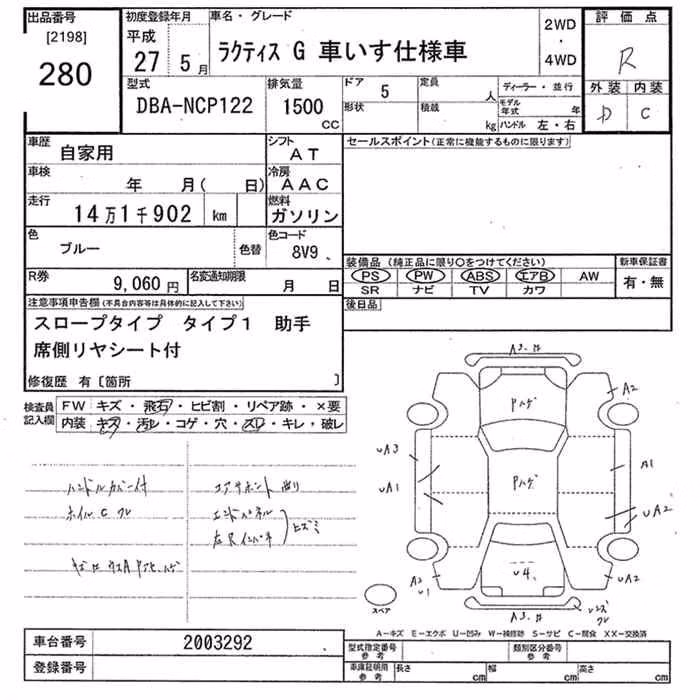 出品番号
[2198]
280
初度登録年月
平成
27 5月
車名・グレード
ラクティス G 車いす仕様車
2WD
・
4WD
評価点
R
外装 内装
D C
型式
DBA-NCP122
排気量
1500
CC
ドア 5
形状
定員 人
積載 kg
ディーラー・並行
モデル年式 年
ハンドル 左・右
車歴
自家用
シフト
AT
車検
年 月( 日)
冷房
AAC
走行
14万1千902 km
燃料
ガソリン
色
ブルー
色替
色コード
8V9
R券
9,060円
名変通知期限
月 日
セールスポイント(正常に機能するものに限ります)
装備品(純正品に限り○をつけてください)
PS PW ABS エアB AW
SR ナビ TV カワ
新車保証書
有・無
後日品
注意事項申告欄(不具合内容等は具体的に記入して下さい)
スロープタイプ タイプ1 助手
席側リヤシート付
修復歴 有〔箇所 〕
検査員
記入欄
FW キズ・飛石・ヒビ割・リペア跡・×要
内装 キズ・汚レ・コゲ・穴・スレ・キレ・破レ
ハンドルカバー付
ホイルC クレ
エンドパネル
ヒズミ
A3
Pハゲ
A2
UA3
A1
UA1
Pハゲ
UA2
A2
U1
U4
UA2
A3
スペア
A−キズ E−エクボ U−凹み W−補修跡 S−サビ C−腐食 XX−交換済
車台番号 2003292
登録番号
型式指定番号
参考
類別区分番号
参考
車庫証明用
参考
長さ cm 幅 cm 高さ cm